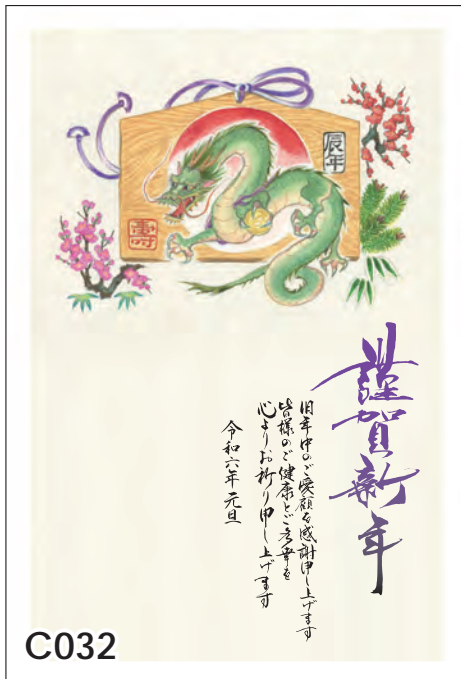 辰年
寿
謹賀新年
旧年中のご愛顧を感謝申し上げます
皆様のご健康とご多幸を
心よりお祈り申し上げます
令和六年 元旦
C032